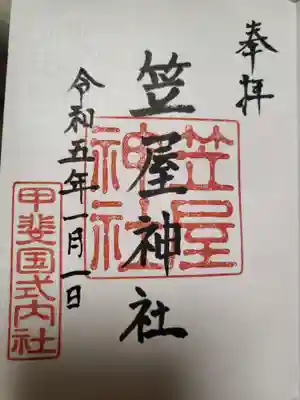 奉拝
笠屋神社
笠屋神社
令和五年一月一日
甲斐国式内社